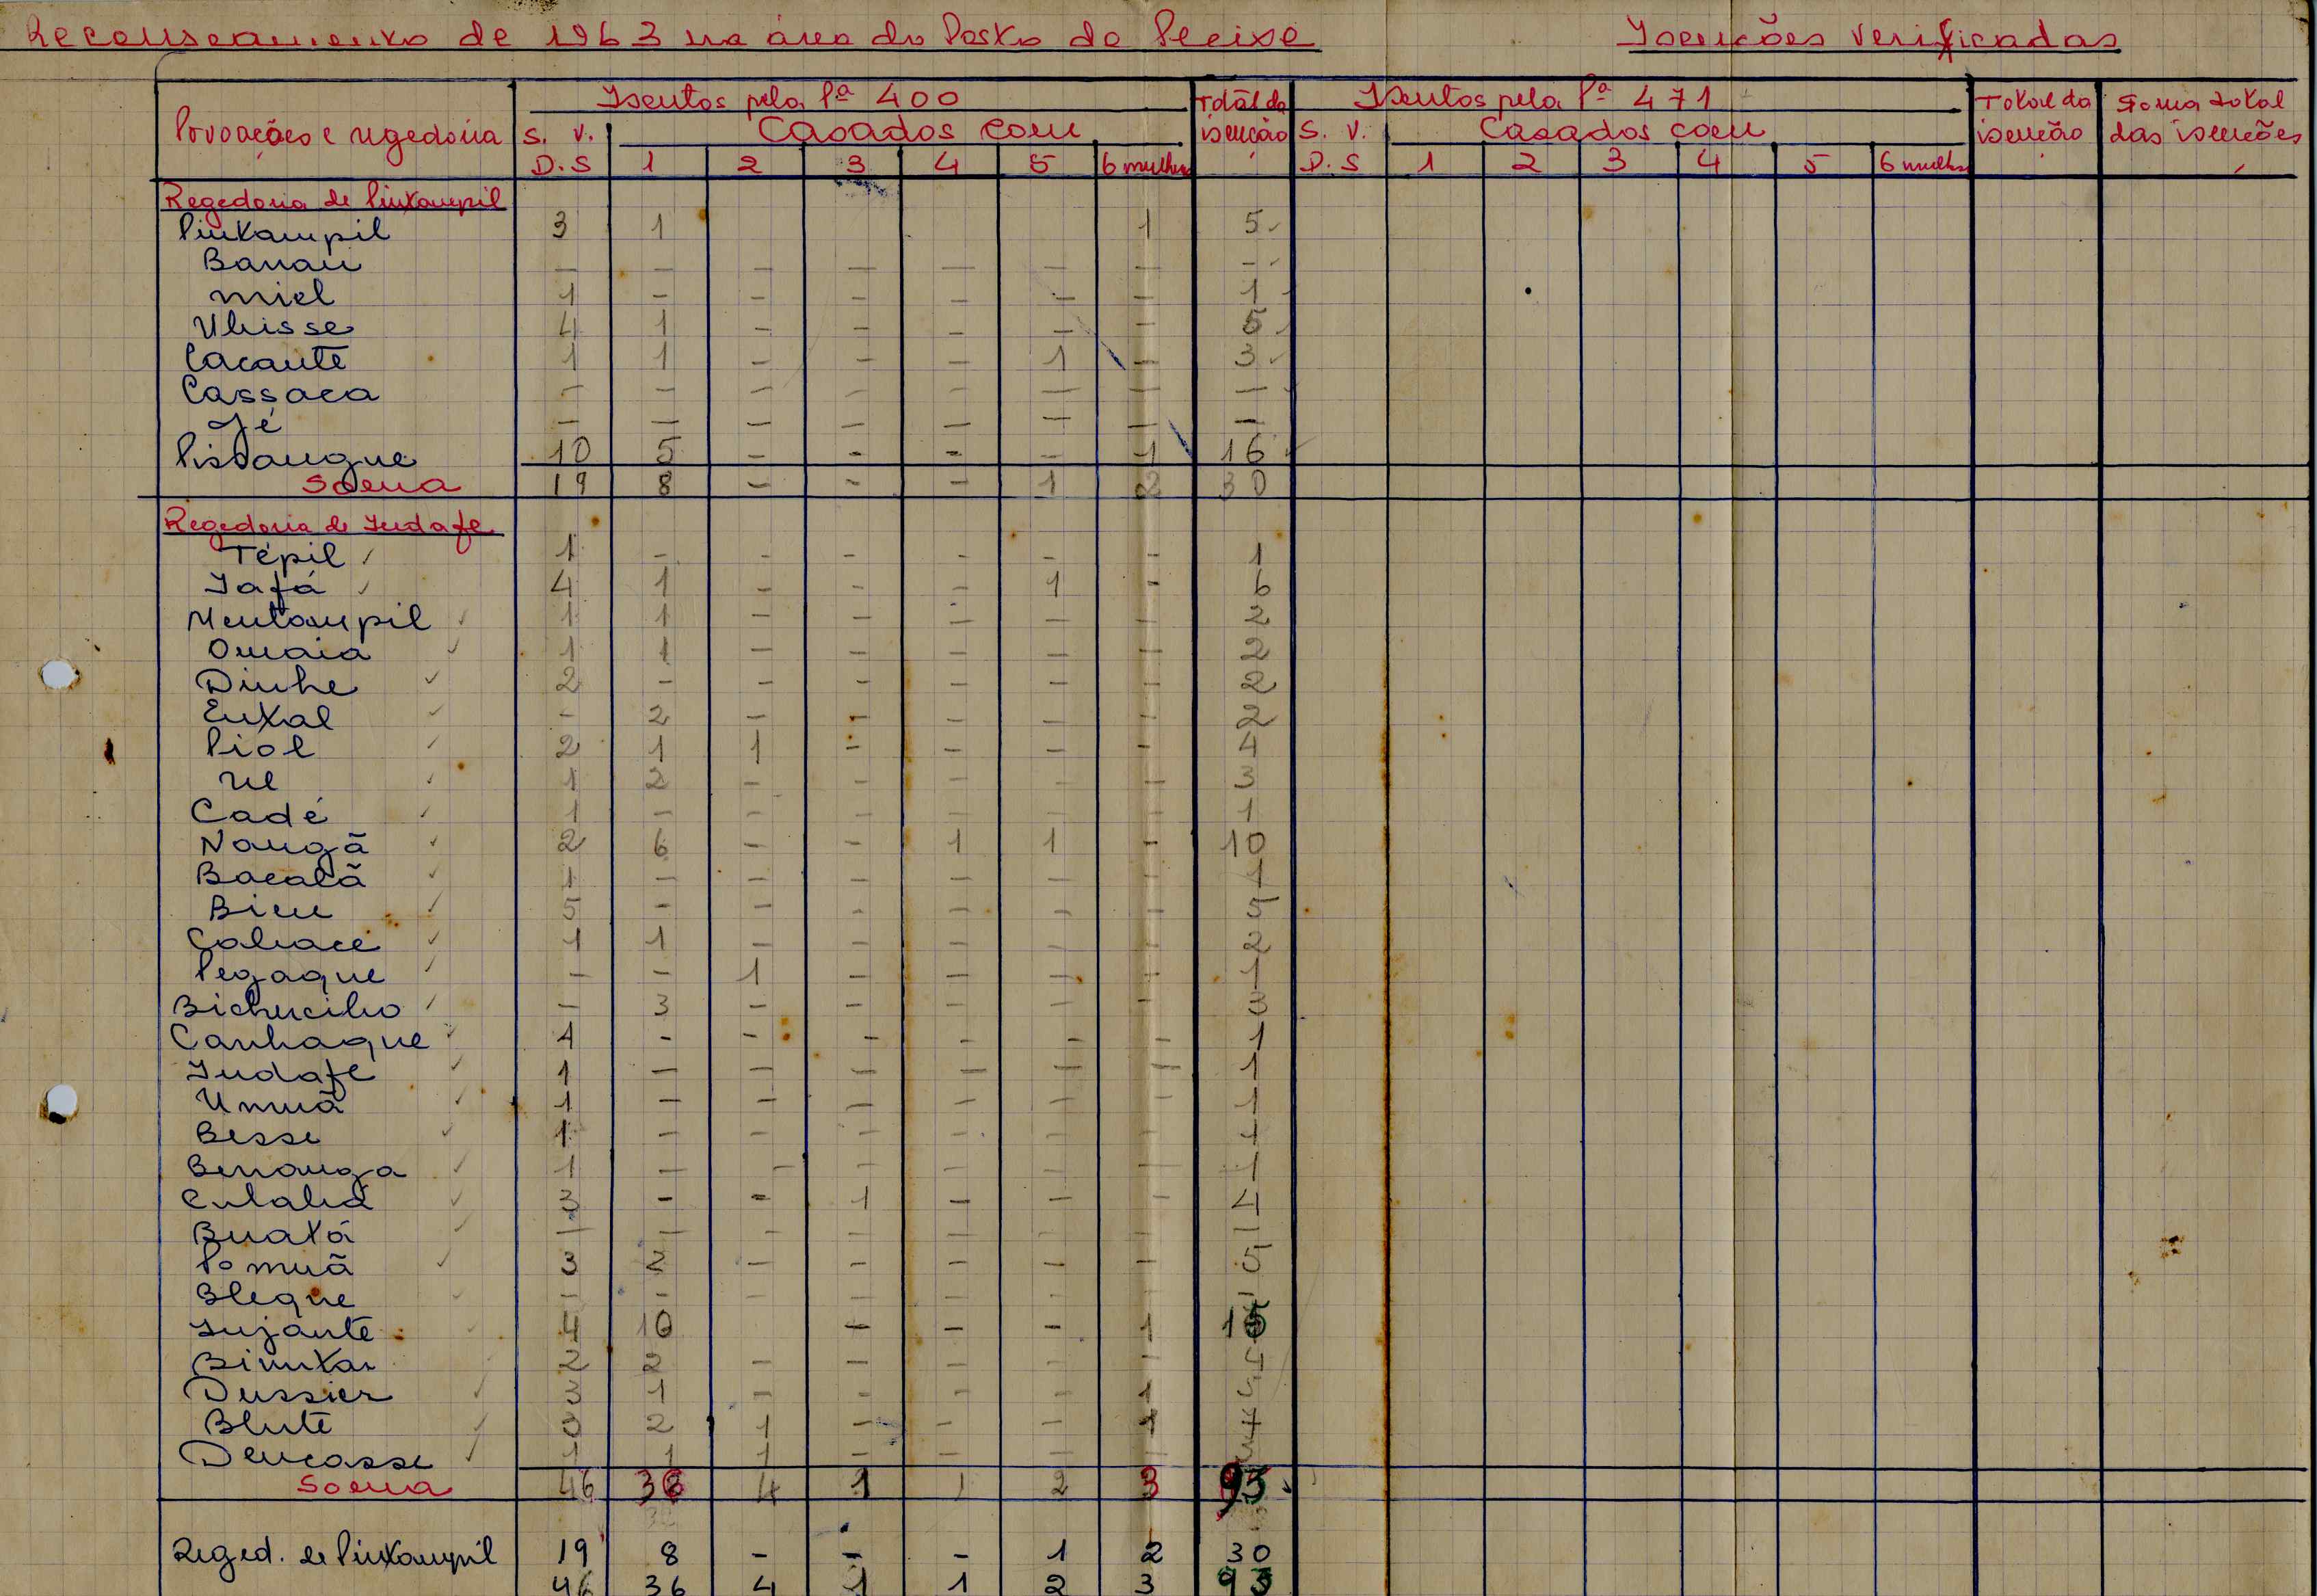 Recenseamento de 1963 na área do Posto do Pecixe Isenções verificadas
Povoações e regedoria Isentos pela Pª 400 Total da isenção Isentos pela Pª 471 Total da isenção Soma total das isenções
S. V. Casados com S. V. Casados com
D. S 1 2 3 4 5 6 mulhes D. S 1 2 3 4 5 6 mulhes
Regedoria de Pintampil
Pintampil 3 1 1 5
Banau — — — — — — — -
Miel 1 - - - - - - 1
Uhisse 4 1 - - - - - 5
Cacante 1 1 - - - 1 - 3
Cassaca - - - - - - - -
Jé - - - - - - - -
Pissangue 10 5 - - - - 1 16
Soma 19 8 - - - 1 2 30
Regedoria de Indafe
Tépil 1 - - - - - - 1
Iafá 4 1 - - - 1 - 6
Mentampil 1 1 - - - - - 2
Omaia 1 1 - - - - - 2
Dinhe 2 - - - - - - 2
Ental - 2 - - - - - 2
Piol 2 1 1 - - - - 4
Ul 1 2 - - - - - 3
Cadé 1 - - - - - - 1
Nangã 2 6 - - 1 1 - 10
Bacalã 1 - - - - - - 1
Bim 5 - - - - - - 5
Caliace 1 1 - - - - - 2
Pegaque - - 1 - - - - 1
Bichucilio - 3 - - - - - 3
Canhaque 1 - - - - - - 1
Indafe 1 - - - - - - 1
Unruã 1 - - - - - - 1
Besse 1 - - - - - - 1
Benanga 1 - - - - - - 1
Culalia 3 - - 1 - - - 4
Buatá - - - - - - - -
Pomuã 3 2 - - - - - 5
Bleque - - - - - - -
Injante 4 10 - - - 1 15
Bimtar 2 2 - - - - - 4
Dussier 3 1 - - - - 1
Blute 3 2 1 - - - 1
Dencasse 1 1 1 - - - -
Soma 46 36 4 1 1 2 3 93
Reged. de Pintampil 19 8 - - - 1 2 30
46 36 4 1 1 2 3 93